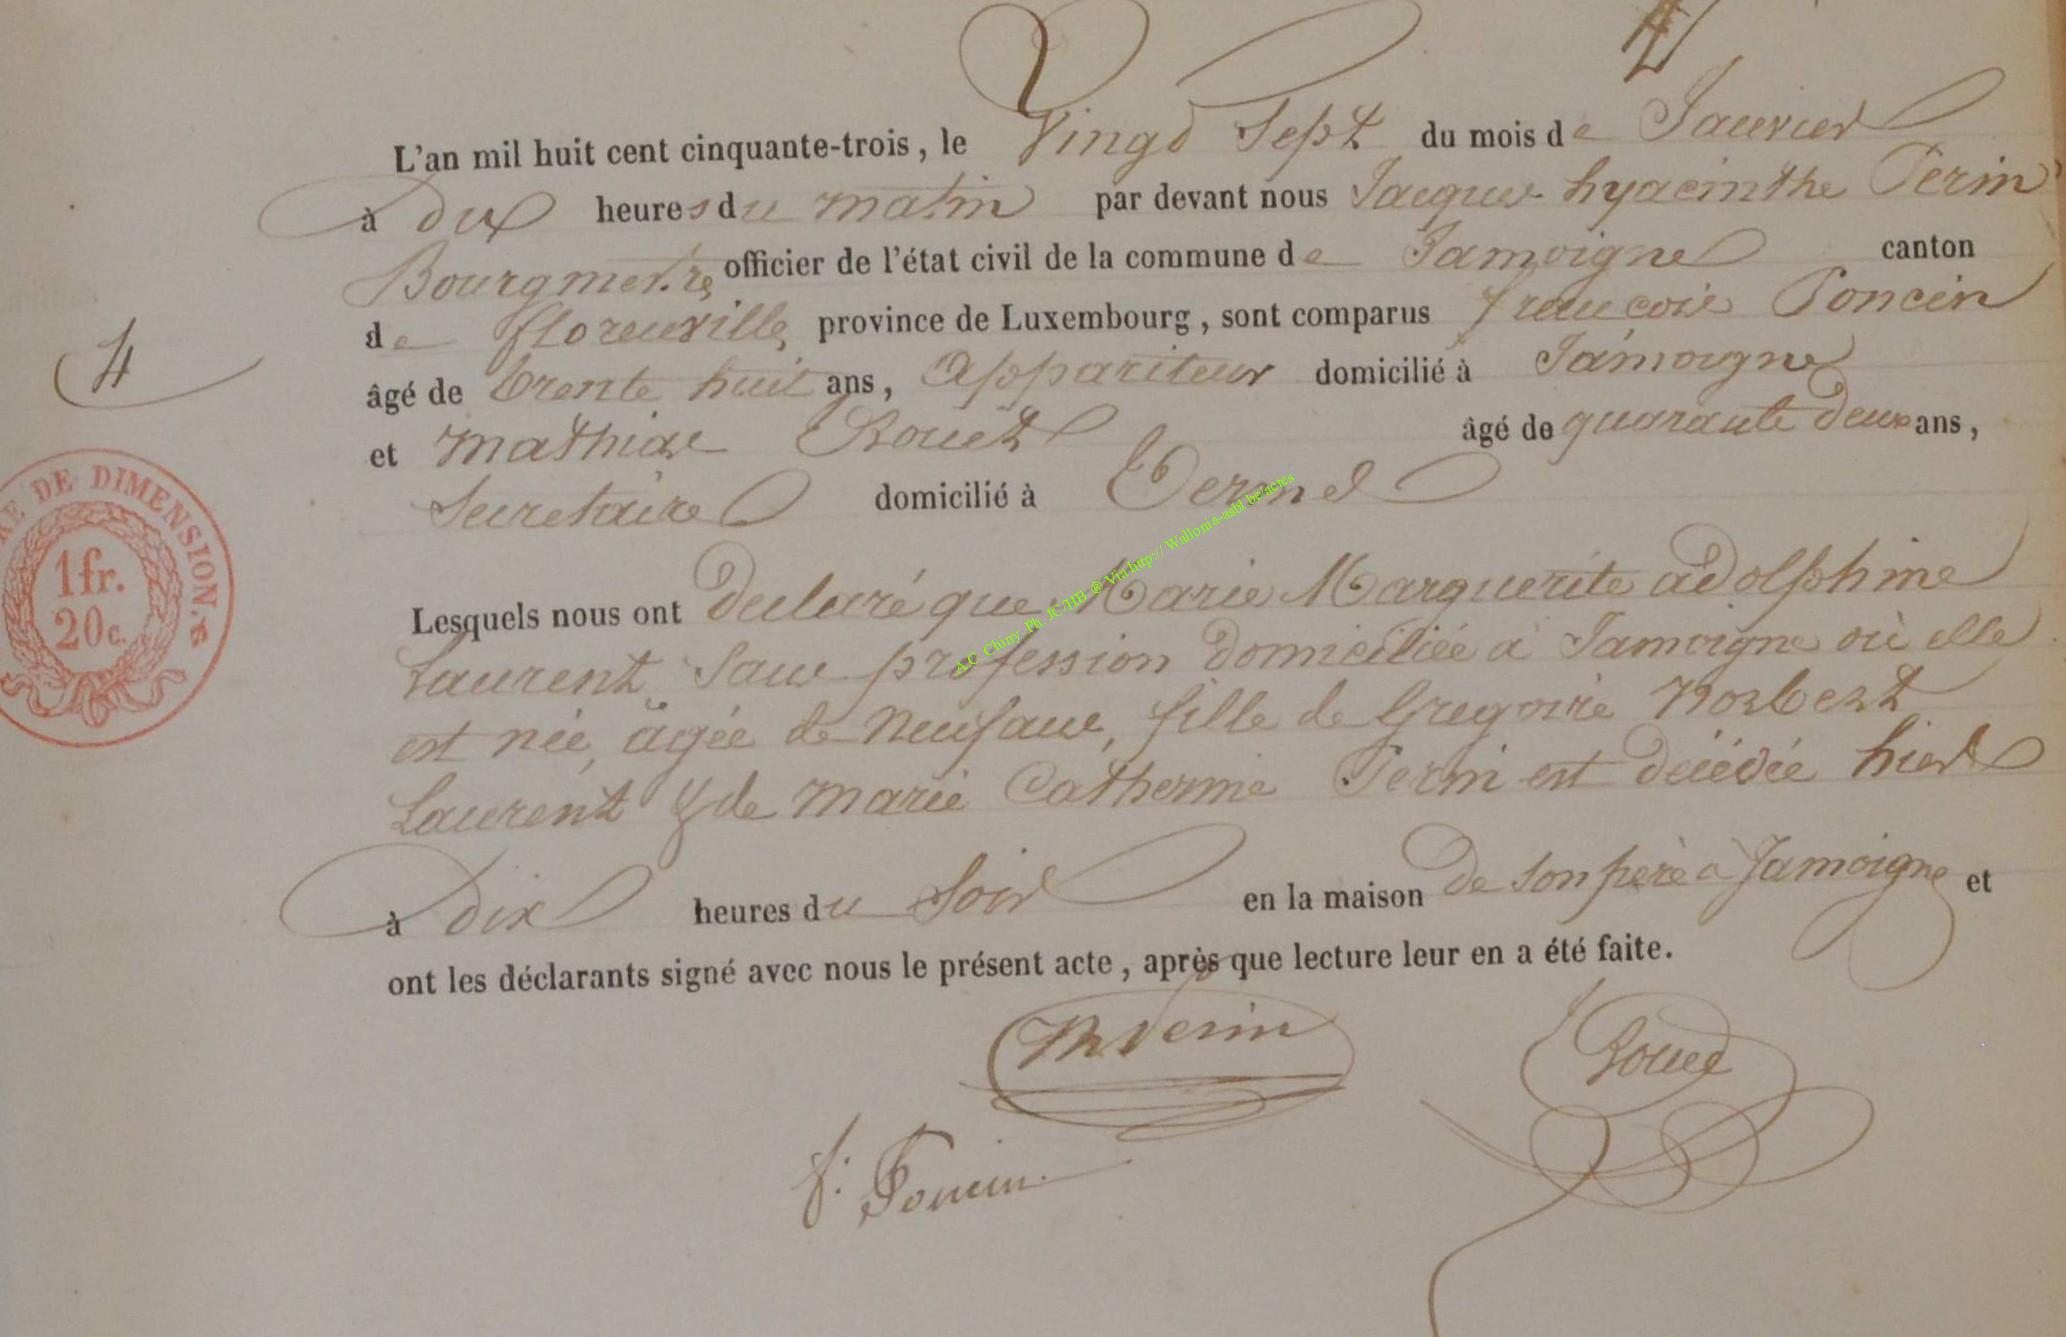 4
L'an mil huit cent cinquante-trois, le Vingt Sept du mois de Janvier
à dix heures du matin par devant nous Jacques hyacinthe Perin
Bourgmestre officier de l'état civil de la commune de Jamoigne canton
de florenville, province de Luxembourg, sont comparus françois Poncin
4
âgé de trente huit ans, Appariteur domicilié à Jamoigne
et Mathias Rouet âgé de quarante deux ans,
Secretaire domicilié à Termes
DE DIMENSION.
1fr.
20c.
Lesquels nous ont declaré que Marie Marguerite adolphine
Laurent Sans profession domiciliée à Jamoigne où elle
est née, âgée de Neuf ans, fille de Gregoire Norbert
Laurent & de Marie Catherine Perin est décédée hier
à dix heures du Soir en la maison de son père a Jamoigne et
ont les déclarants signé avec nous le présent acte, après que lecture leur en a été faite.
Perin
Rouet
f. Poncin
A.C Chiny Ph. JC HB @ Via http:// Wallonia-asbl.be/actes